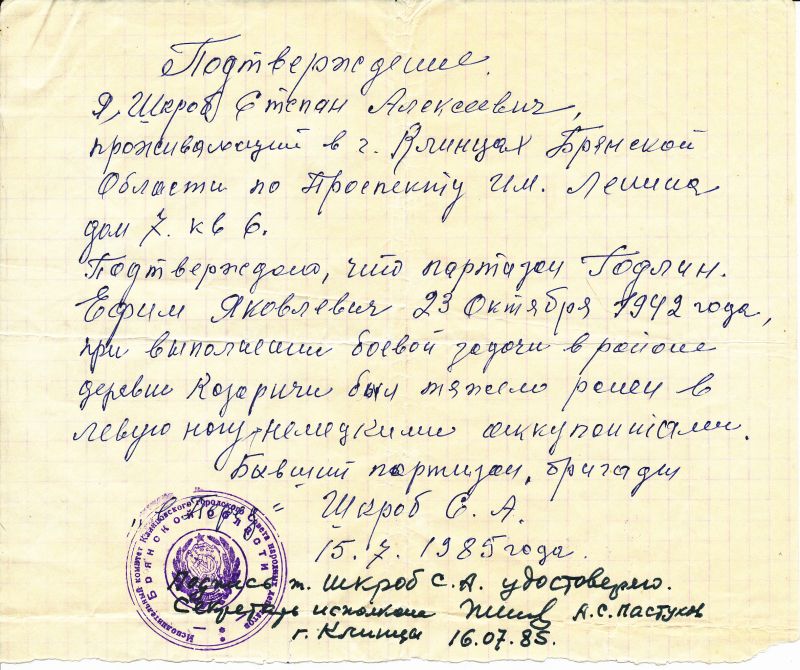 Подтверждение.
Я, Шкроб Степан Алексеевич,
проживающий в г. Клинцах Брянской
Области по Проспекту Им. Ленина
дом 7. кв 6.
Подтверждаю, что партизан Годлин.
Ефим Яковлевич 23 Октября 1942 года,
при выполнении боевой задачи в районе
деревни Козаричи был тяжело ранен в
левую ногу немецкими оккупантами.
Бывший партизан, бригады
Шкроб С. А.
15. 7. 1985 года.
Подпись т. Шкроб С. А. удостоверяю.
Секретарь исполкома А. С. Пастухов
г. Клинцы 16.07.85.
Исполнительный комитет Клинцовского городского Совета народных депутатов
БРЯНСКОЙ ОБЛАСТИ